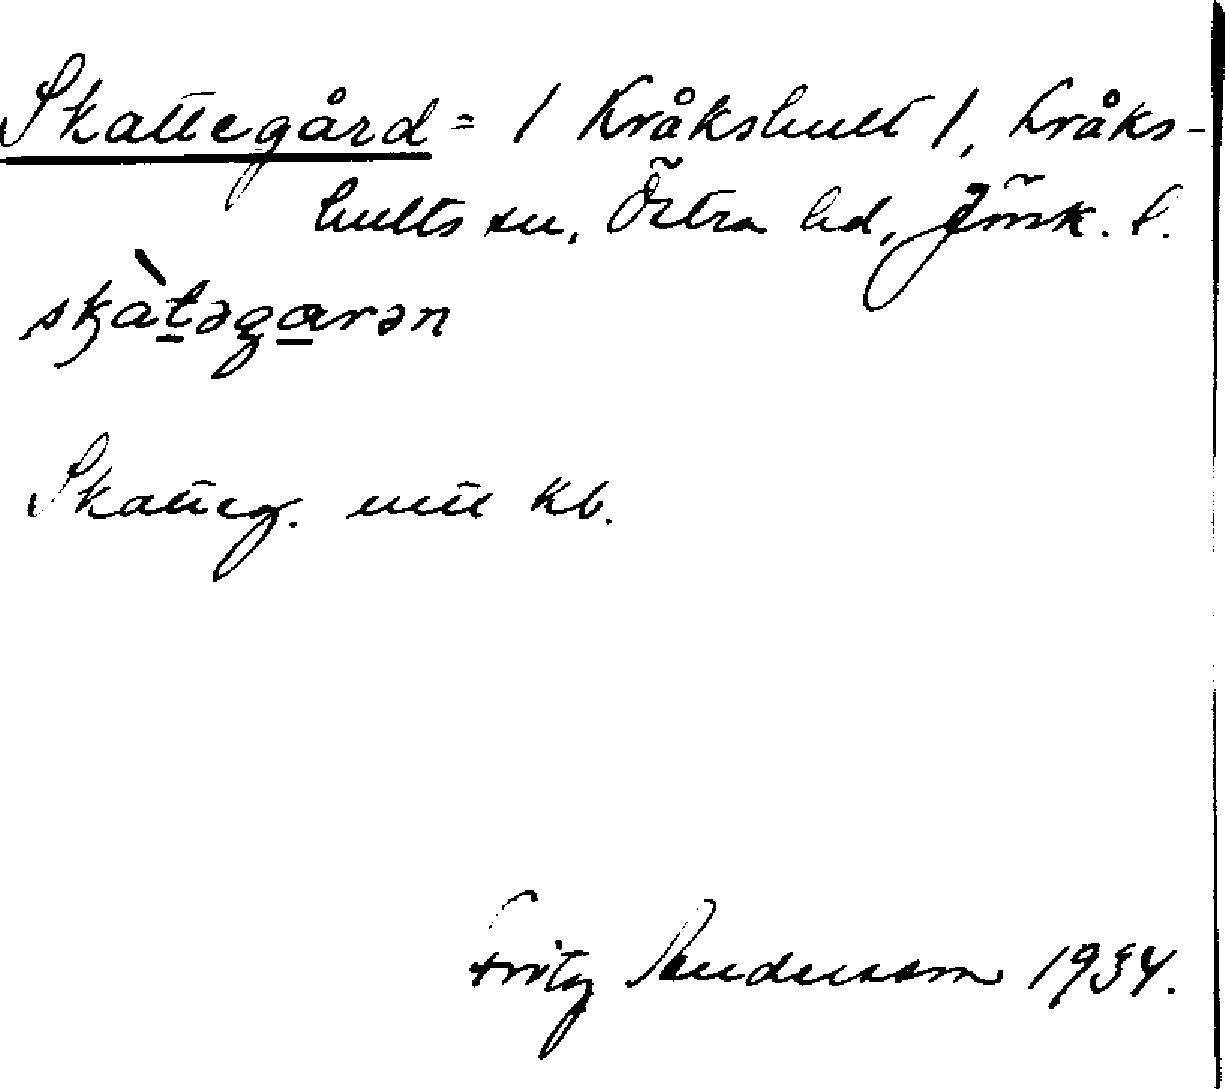 Skattegård = / Kråkshult /, Kråks-
hults sn, Östra hd, Jönk. l.
skàtəgarən
Skatteg. utt Kb.
Fritz Andersson 1934.